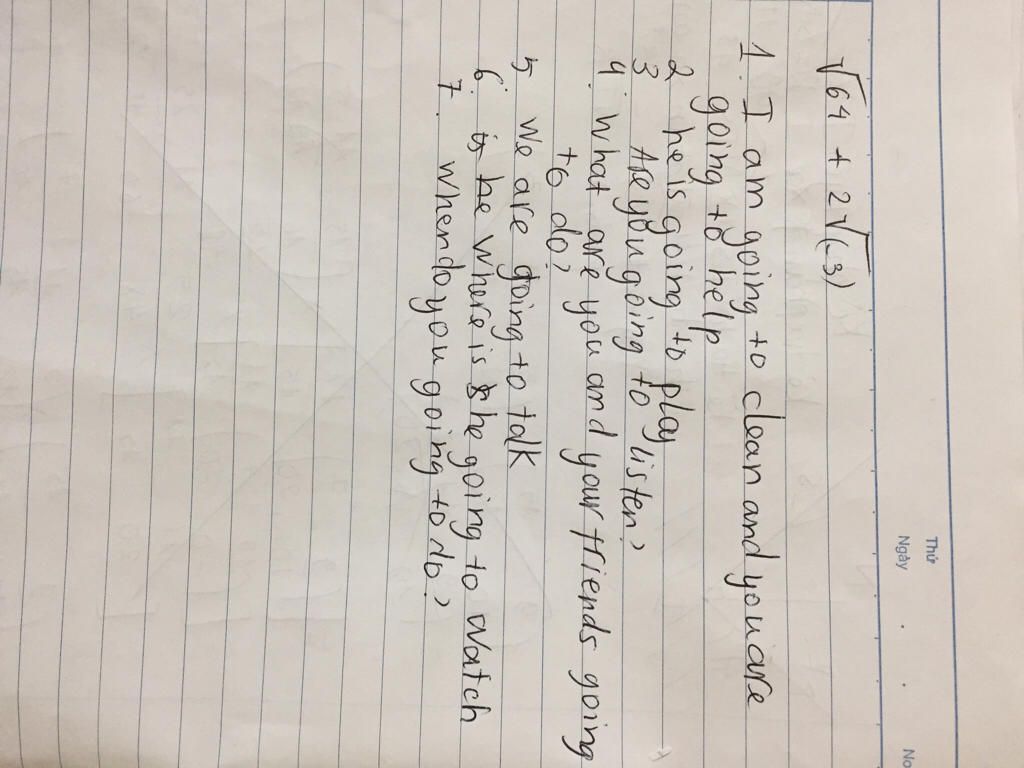 Thứ
Ngày
No
√64 + 2√(-3)
1. I am going to clean and you are
going to help
2 he is going to play
3 Are you going to listen?
4. what are you and your friends going
to do?
5 we are going to talk
6. is he where is she going to watch
7. when do you going to do?